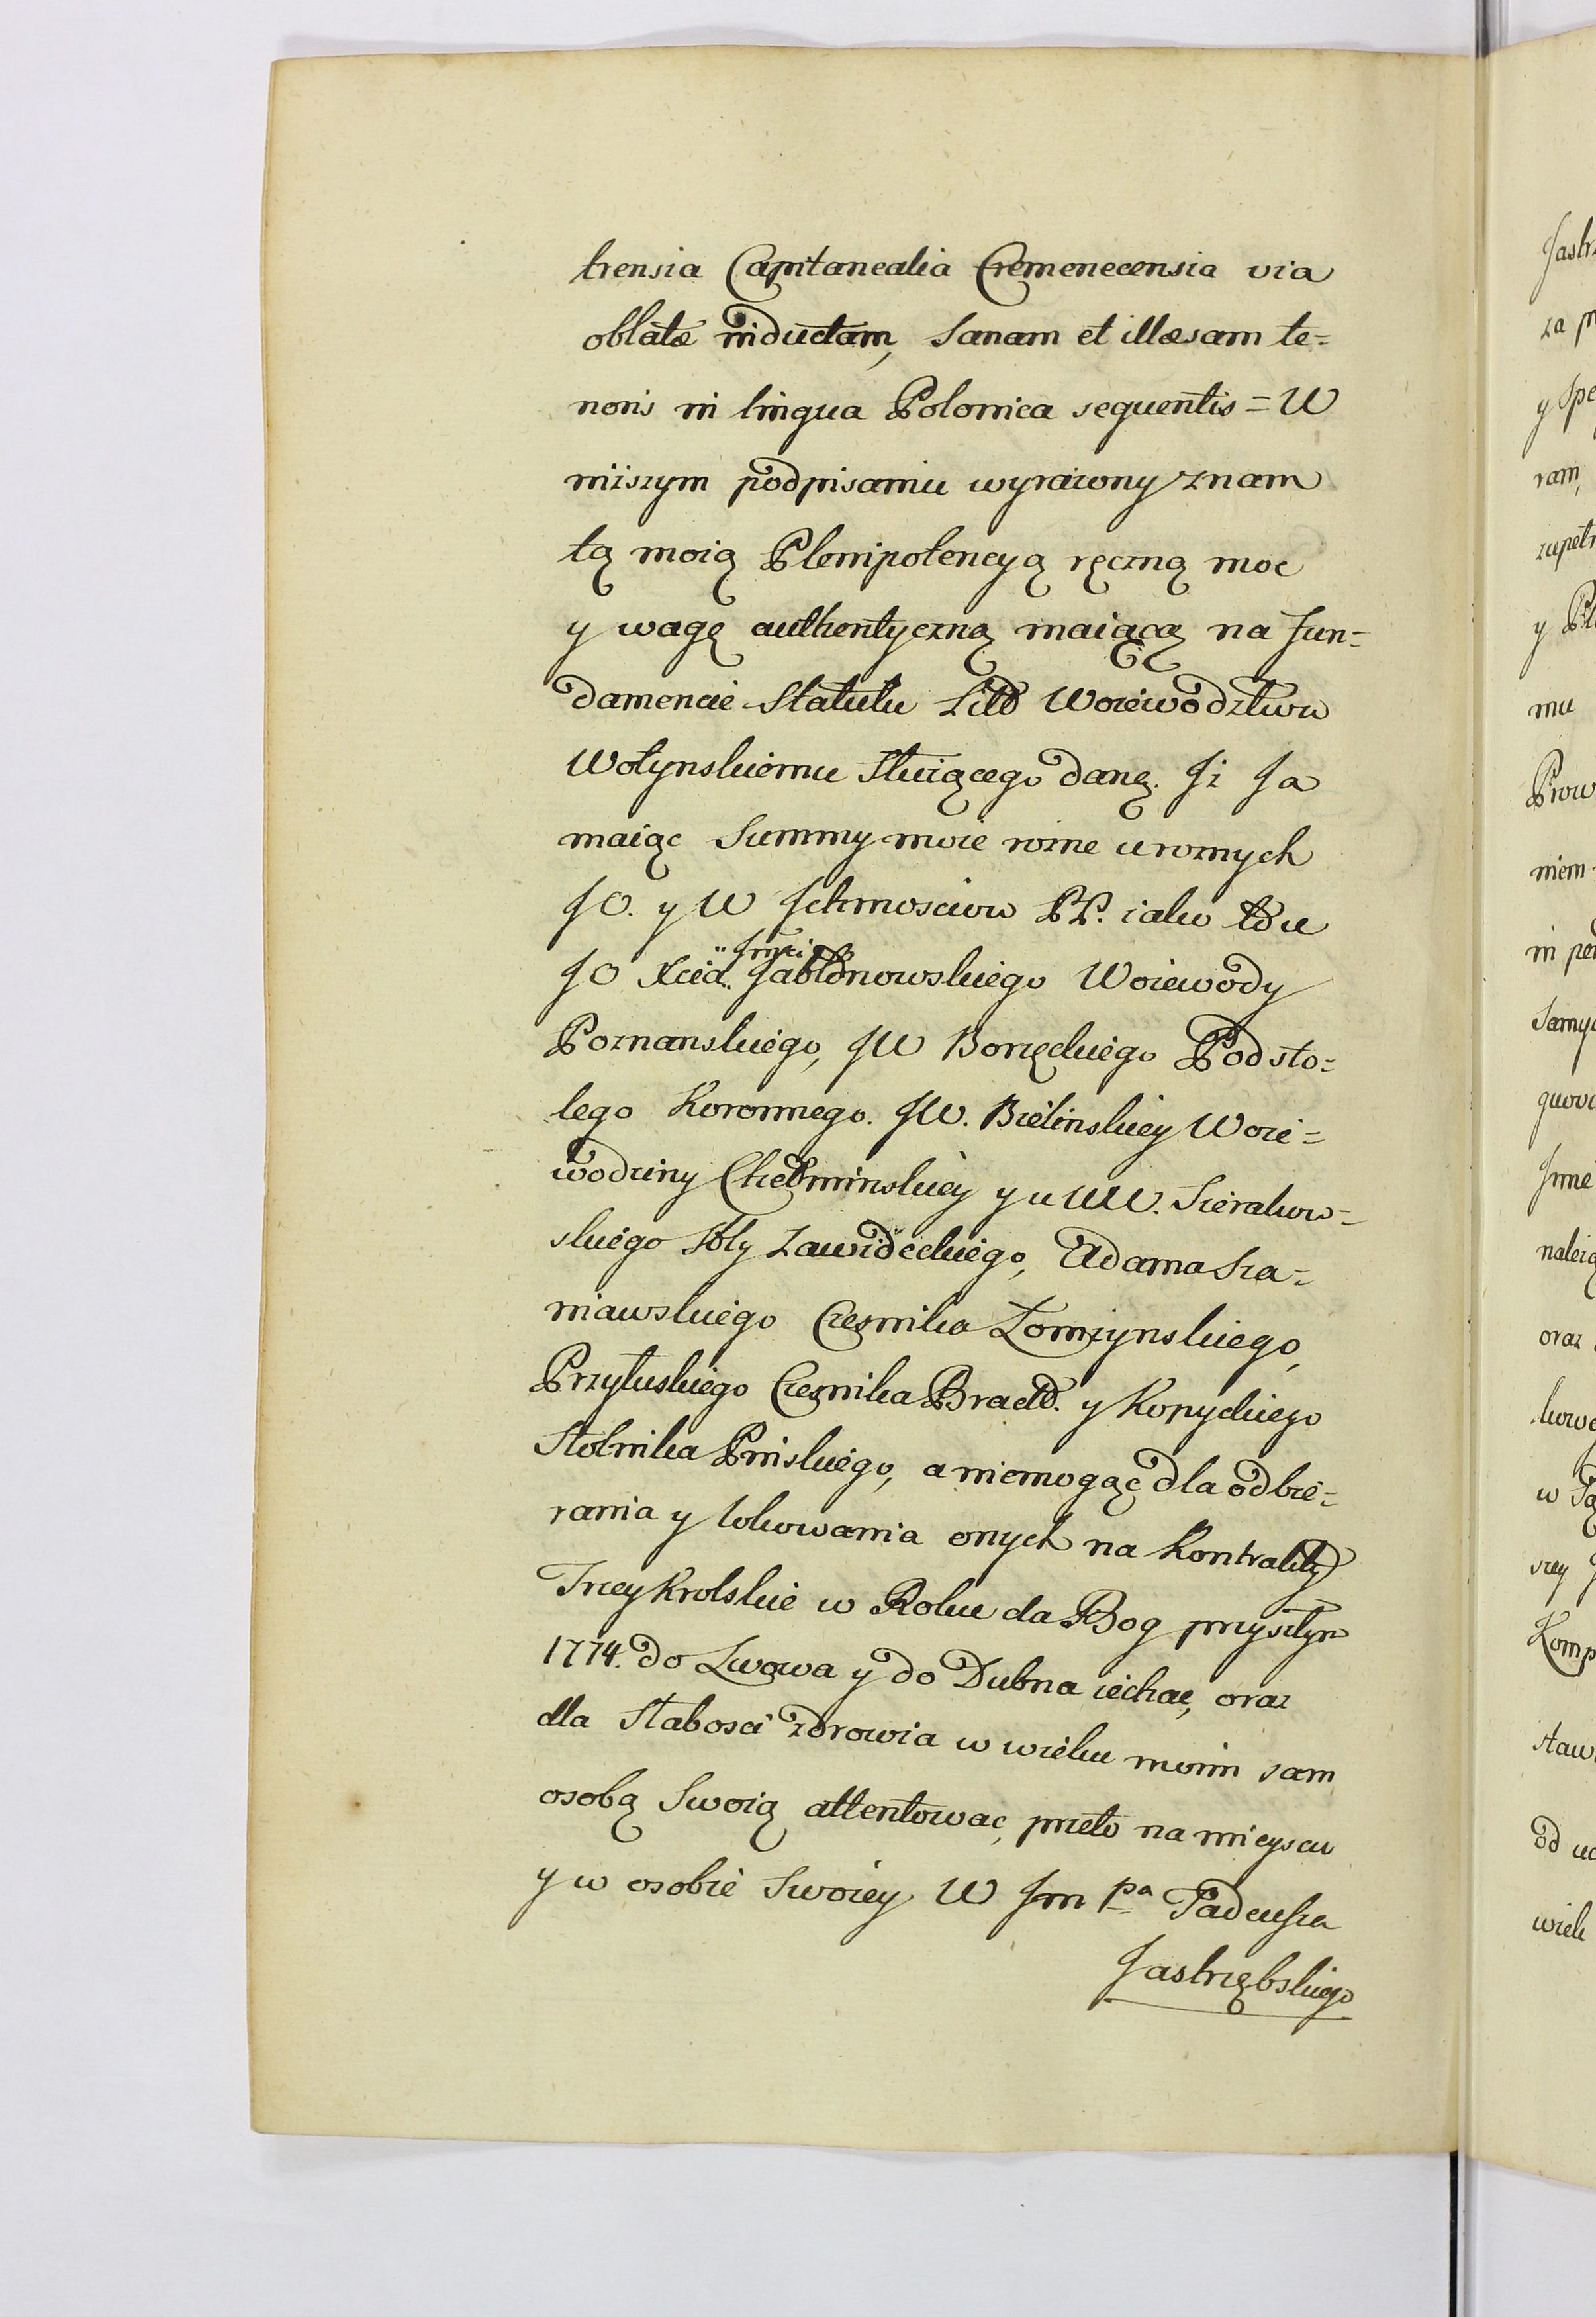 trensia Capitanealia Cremenecensia via
oblatæ inductam, Sanam et illæsam te=
noris in lingua Polonica sequentis = W
niższym podpisaniu wyrażony znam
tą moią Plenipotencyą ręczną moc
y wagę authentyczną maiącą na Fun=
damencie Statutu Litt Woiewodztwu
Wołynskiemu Służącego daną. Iż Ja
maiąc Summy moie rożne u rożnych
JO. y W Ichmościow PP. iako tdu
JO Xcia Jmci Jabłonowskiego Woiewody
Poznanskiego, JW Borzęckiego Podsto=
lego Koronnego. JW. Bielinskiey Woie=
wodziny Chełminskiey y u WW. Sierakow=
skiego Stty Zawideckiego, Adama Sza=
niawskiego Czesnika Łomżynskiego,
Przyłuskiego Czesnika Bractt. y Kopyckiego
Stolnika Pinskiego, a niemogąc dla odbie=
rania y lokowania onych na Kontrakty
Trzeykrolskie w Roku da Bog przyszłym
1774. do Lwowa y do Dubna iechac, oraz
dla Słabosci zdrowia w wieku moim sam
osobą Swoią attentowac, przeto na mieyscu
y w osobie Swoiey W Jm Pa Tadeusza
Jastrzębskiego
Jastrz
za pr
y Spe
ram,
zupełn
y Pl
mu
Prow
niem
in per
Samyc
quovi
Imie
należą
oraz
kowa
w Są
szey
Komp
staw
od uc
wiek